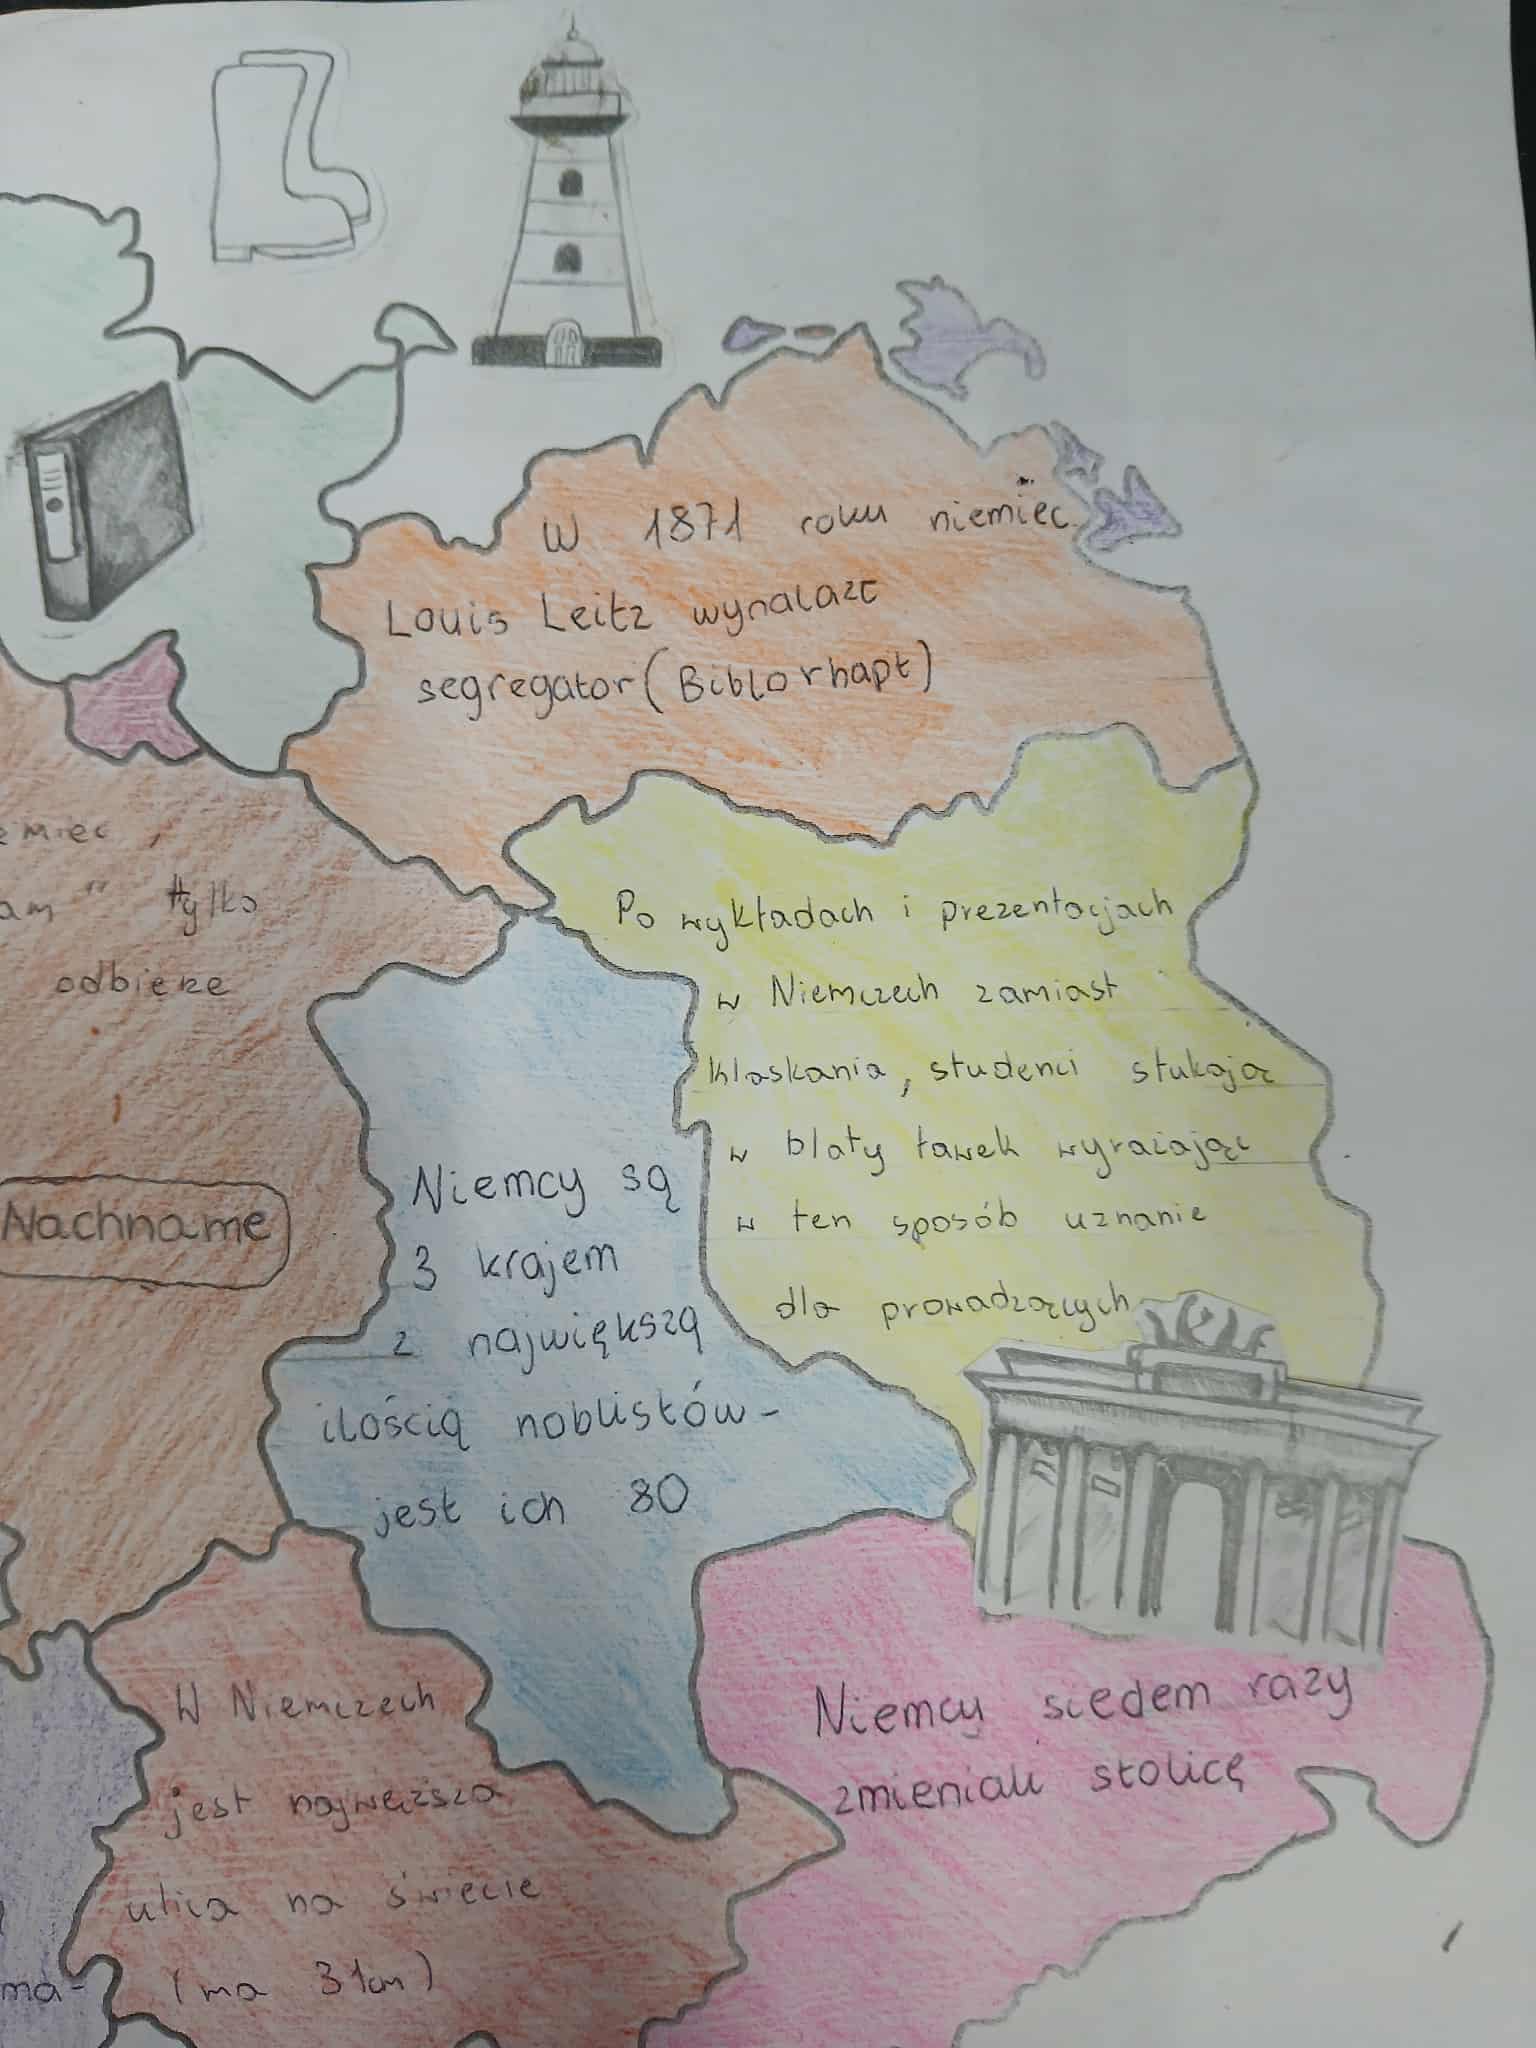 W 1871 roku niemiec
Louis Leitz wynalazł
segregator (Biblorhapt)
Po wykładach i prezentacjach
w Niemczech zamiast
klaskania, studenci stukają
w blaty ławek wyrażając
w ten sposób uznanie
dla prowadzących
emiec,
am" tylko
odbierze
Nachname
Niemcy są
3 krajem
z największą
ilością noblistów-
jest ich 80
Niemcy siedem razy
zmieniali stolicę
W Niemczech
jest najwęższa
ulica na świecie
(ma 31cm)
ma-